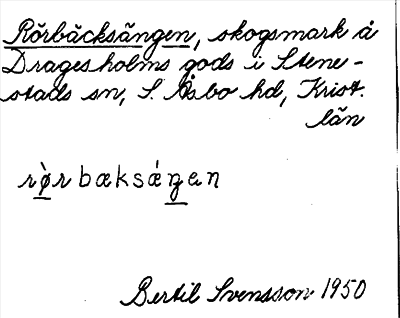 Rörbäcksängen, skogsmark å
Dragesholms gods i Stene-
stads sn, S. Åsbo hd, Krist.
län
rø̀rbæksǽŋen
Bertil Svensson 1950